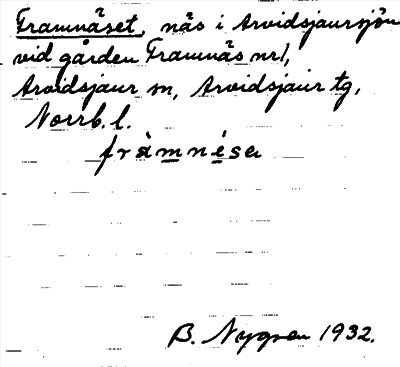 Framnäset, näs i Arvidsjaursjön
vid gården Framnäs nr1,
Arvidsjaur sn, Arvidsjaur tg,
Norrb. l.
fràmnésa
B. Nygren 1932.